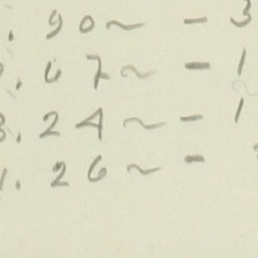 . 90~ - 3
. 67~ - 1
3. 24~ - 1
. 26~ -